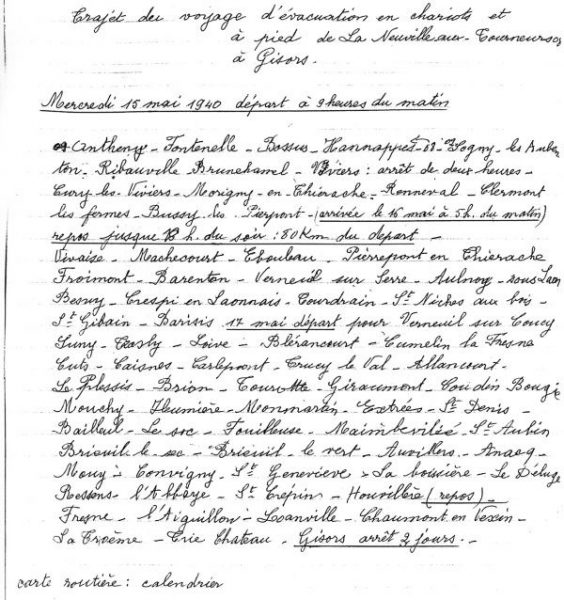 Trajet du voyage d'évacuation en chariots et
à pied de La Neuville-aux-Tourneurs
à Gisors.
Mercredi 15 mai 1940 départ à 9 heures du matin
Antheny - Fontenelle - Bossus - Hannappes - Logny - les Auben
ton. Ribauville Brunehamel - Viviers : arrêt de deux heures -
Cury-les-Viviers - Morigny-en-Thiérache - Renneval - Clermont
les fermes - Bussy les Pierpont - (arrivée le 16 mai à 5h. du matin)
repos jusque 8 h. du soir : 80 Km du départ -
Vivaise - Machecourt - Ebouleau - Pierrepont en Thierache
Froimont - Barenton - Verneuil sur Serre - Aulnoy - sous Laon
Besny - Crespi en Laonnais - Coudrain - St Niches au bois -
St Gibain - Barisis 17 mai départ pour Verneuil sur Coucy
Luny - - Loive - Blérancourt - Cumelin la Fresne
Cuts - Caisnes - Carlepont - Crucy le Val - Allancourt -
Le Plessis - Brion - Tourotte - Giraumont - Coudin Bougie
Mouchy - Fleumière - Monmartin - Extrées - St Denis -
Bailleul - Le soc - Fouilleuse - Maimbevilié - St Aubin
Brieuil le sec - Brieuil le vert - Auvillers - Ansacq -
Mouy - Convigny - St Geneviève - La boissière - Le Déluge
Ressons - l'Abbaye - St Crépin - (repos) -
Fresne - l'Aiguillon - Loanville - Chaumont en Vexin -
La Troème - Trie Chateau - Gisors arrêt 2 jours. -
carte routière : calendrier